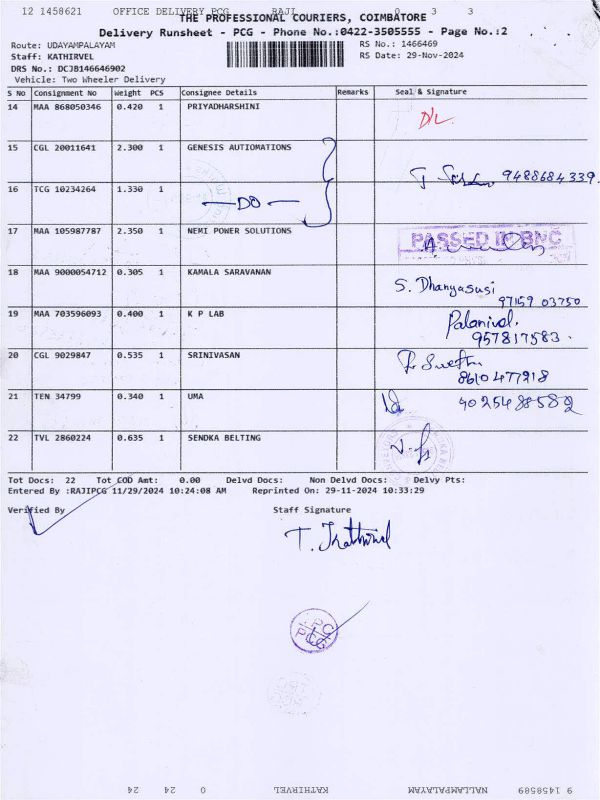 12 1458621 OFFICE DELIVERY PCG RAJI 0 3 3
THE PROFESSIONAL COURIERS, COIMBATORE
Delivery Runsheet - PCG - Phone No.:0422-3505555 - Page No.:2
Route: UDAYAMPALAYAM RS No.: 1466469
Staff: KATHIRVEL RS Date: 29-Nov-2024
DRS No.: DCJB146646902
Vehicle: Two Wheeler Delivery
S No Consignment No Weight PCS Consignee Details Remarks Seal & Signature
14 MAA 868050346 0.420 1 PRIYADHARSHINI D/L
15 CGL 20011641 2.300 1 GENESIS AUTIOMATIONS
9488684339
16 TCG 10234264 1.330 1
DO
17 MAA 105987787 2.350 1 NEMI POWER SOLUTIONS PASSED IN BNC
18 MAA 9000054712 0.305 1 KAMALA SARAVANAN S. Dhanyasusi
97159 03750
19 MAA 703596093 0.400 1 K P LAB Palanivel.
957817583.
20 CGL 9029847 0.535 1 SRINIVASAN
8610477218
21 TEN 34799 0.340 1 UMA
22 TVL 2860224 0.635 1 SENDKA BELTING
Tot Docs: 22 Tot COD Amt: 0.00 Delvd Docs: Non Delvd Docs: Delvy Pts:
Entered By :RAJIPCG 11/29/2024 10:24:08 AM Reprinted On: 29-11-2024 10:33:29
Verified By Staff Signature
PCG
9 1458589 NALLAMPALAYAM KATHIRVEL 0 24 24